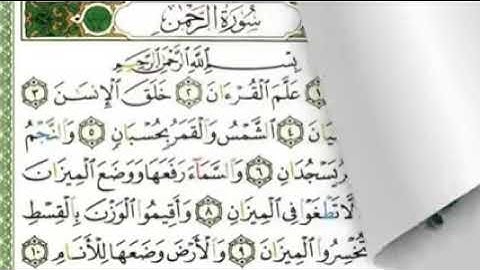 سُورَةُ الرَّحْمَٰن
بِسْمِ اللَّهِ الرَّحْمَٰنِ الرَّحِيمِ
١ عَلَّمَ الْقُرْءَانَ ٢ خَلَقَ الْإِنسَٰنَ ٣
٤ الشَّمْسُ وَالْقَمَرُ بِحُسْبَانٍ ٥ وَالنَّجْمُ
يَسْجُدَانِ ٦ وَالسَّمَآءَ رَفَعَهَا وَوَضَعَ الْمِيزَانَ
تَطْغَوْا فِي الْمِيزَانِ ٨ وَأَقِيمُوا الْوَزْنَ بِالْقِسْطِ
تُخْسِرُوا الْمِيزَانَ ٩ وَالْأَرْضَ وَضَعَهَا لِلْأَنَامِ ١٠